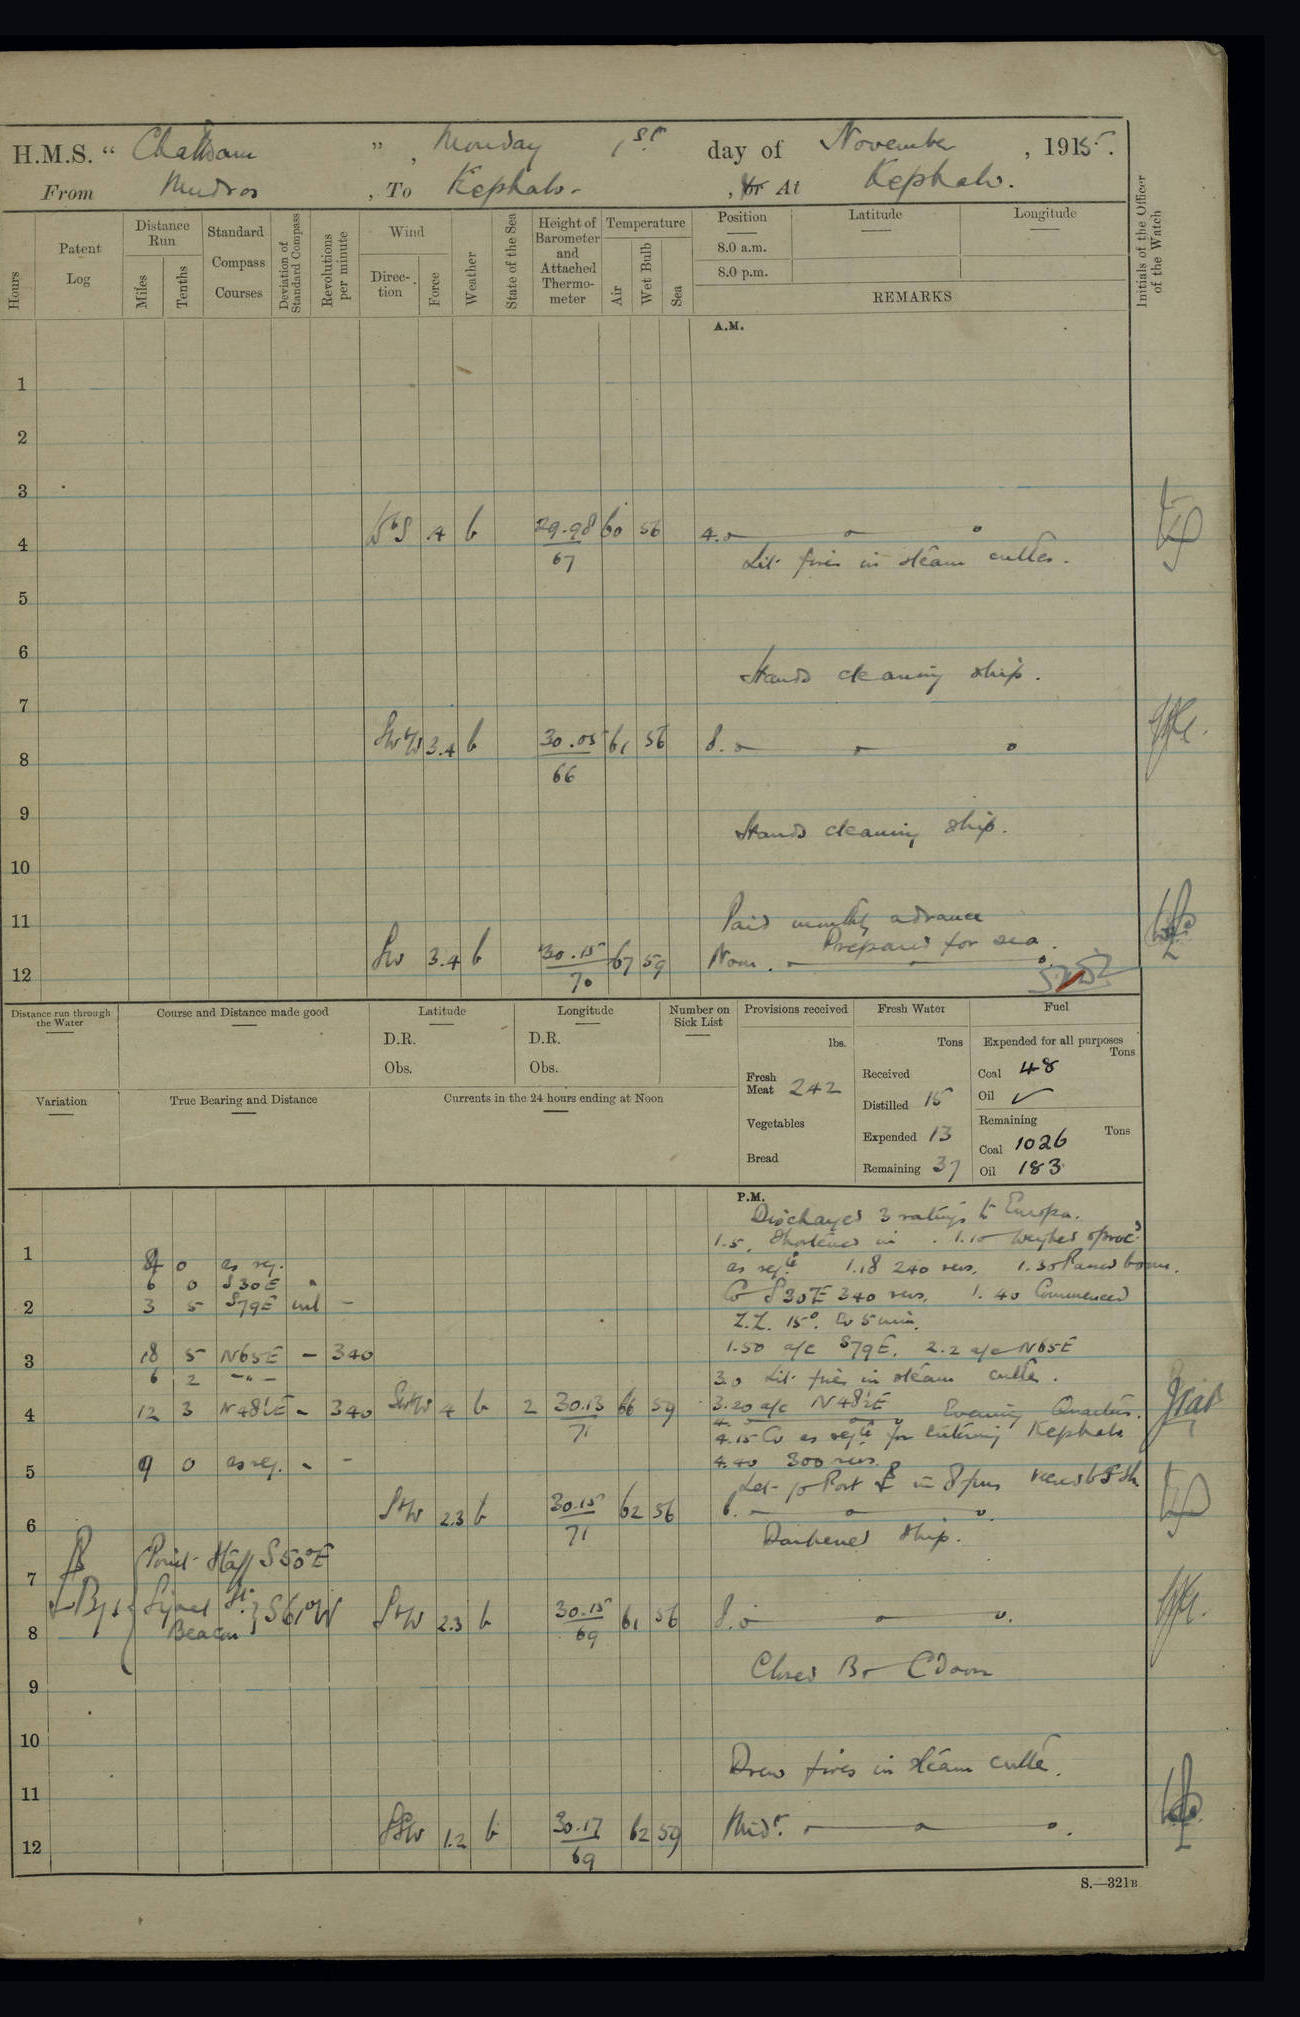 H.M.S. “ Chatham ” , Monday 1st. day of November , 1915.
From Mudros , To Kephalo - , or At Kephalo.
Hours
Patent Log
Distance Run
Miles
Tenths
Standard Compass Courses
Deviation of Standard Compass
Revolutions per minute
Wind
Direc- tion
Force
Weather
State of the Sea
Height of Barometer and Attached Thermo- meter
Temperature
Air
Wet Bulb
Sea
Position
8.0 a.m.
8.0 p.m.
Latitude
Longitude
REMARKS
Initials of the Officer of the Watch
A.M.
1
2
3
4 4 b 29.98 60 56 4.0
67
Lit fires in steam cutter.
5
6
Hands cleaning ship.
7
8 SWbW 3.4 b 30.05 61 56 8.0
66
9
Hands cleaning ship.
10
11
Paid monthly advance
Prepared for sea.
12 SW 3.4 b 30.15 67 59 Noon.
70
Distance run through the Water
Course and Distance made good
Latitude
D.R.
Obs.
Longitude
D.R.
Obs.
Number on Sick List
Provisions received
lbs.
Fresh Meat 242
Vegetables
Bread
Fresh Water
Tons
Received
Distilled 15
Expended 13
Remaining 37
Fuel
Expended for all purposes
Tons
Coal 48
Oil ✓
Remaining
Tons
Coal 1026
Oil 183
Variation
True Bearing and Distance
Currents in the 24 hours ending at Noon
P.M.
Discharged 3 ratings to Europa.
1.5, Shortened in . 1.10 Weighed & procd
1 0 as req. as reqte 1.18 240 revs. 1.30 Paned boom.
6 0 S30E " Co S30E 340 revs. 1.40 Commenced
2 3 5 S79E nil - Z.Z. 15°. Ev 5 min.
3 18 5 N65E - 340 1.50 a/c S79E, 2.2 a/c N65E
6 2 - " - 3.0 Lit fires in steam cutter.
4 12 3 N48½E - 340 SWbW 4 b 2 30.13 66 59 3.20 a/c N48½E Evening Quarters.
71
4.
4.15 Co as reqte for entering Kephalo
5 9 0 as req. - - 4.40 300 revs.
Let go Port in 8 fms
6 SbW 2.3 b 30.15 62 56 6.
71
Darkened ship.
7
Bgs { Point Staff S50°E
Signal St. Beacon } S61°W
8 SbW 2.3 b 30.15 61 56 8.0
69
Closed B & C Doors
9
10
Drew fires in steam cutter.
11
12 SSW 1.2 b 30.17 62 59 Midt.
69
S.—321B